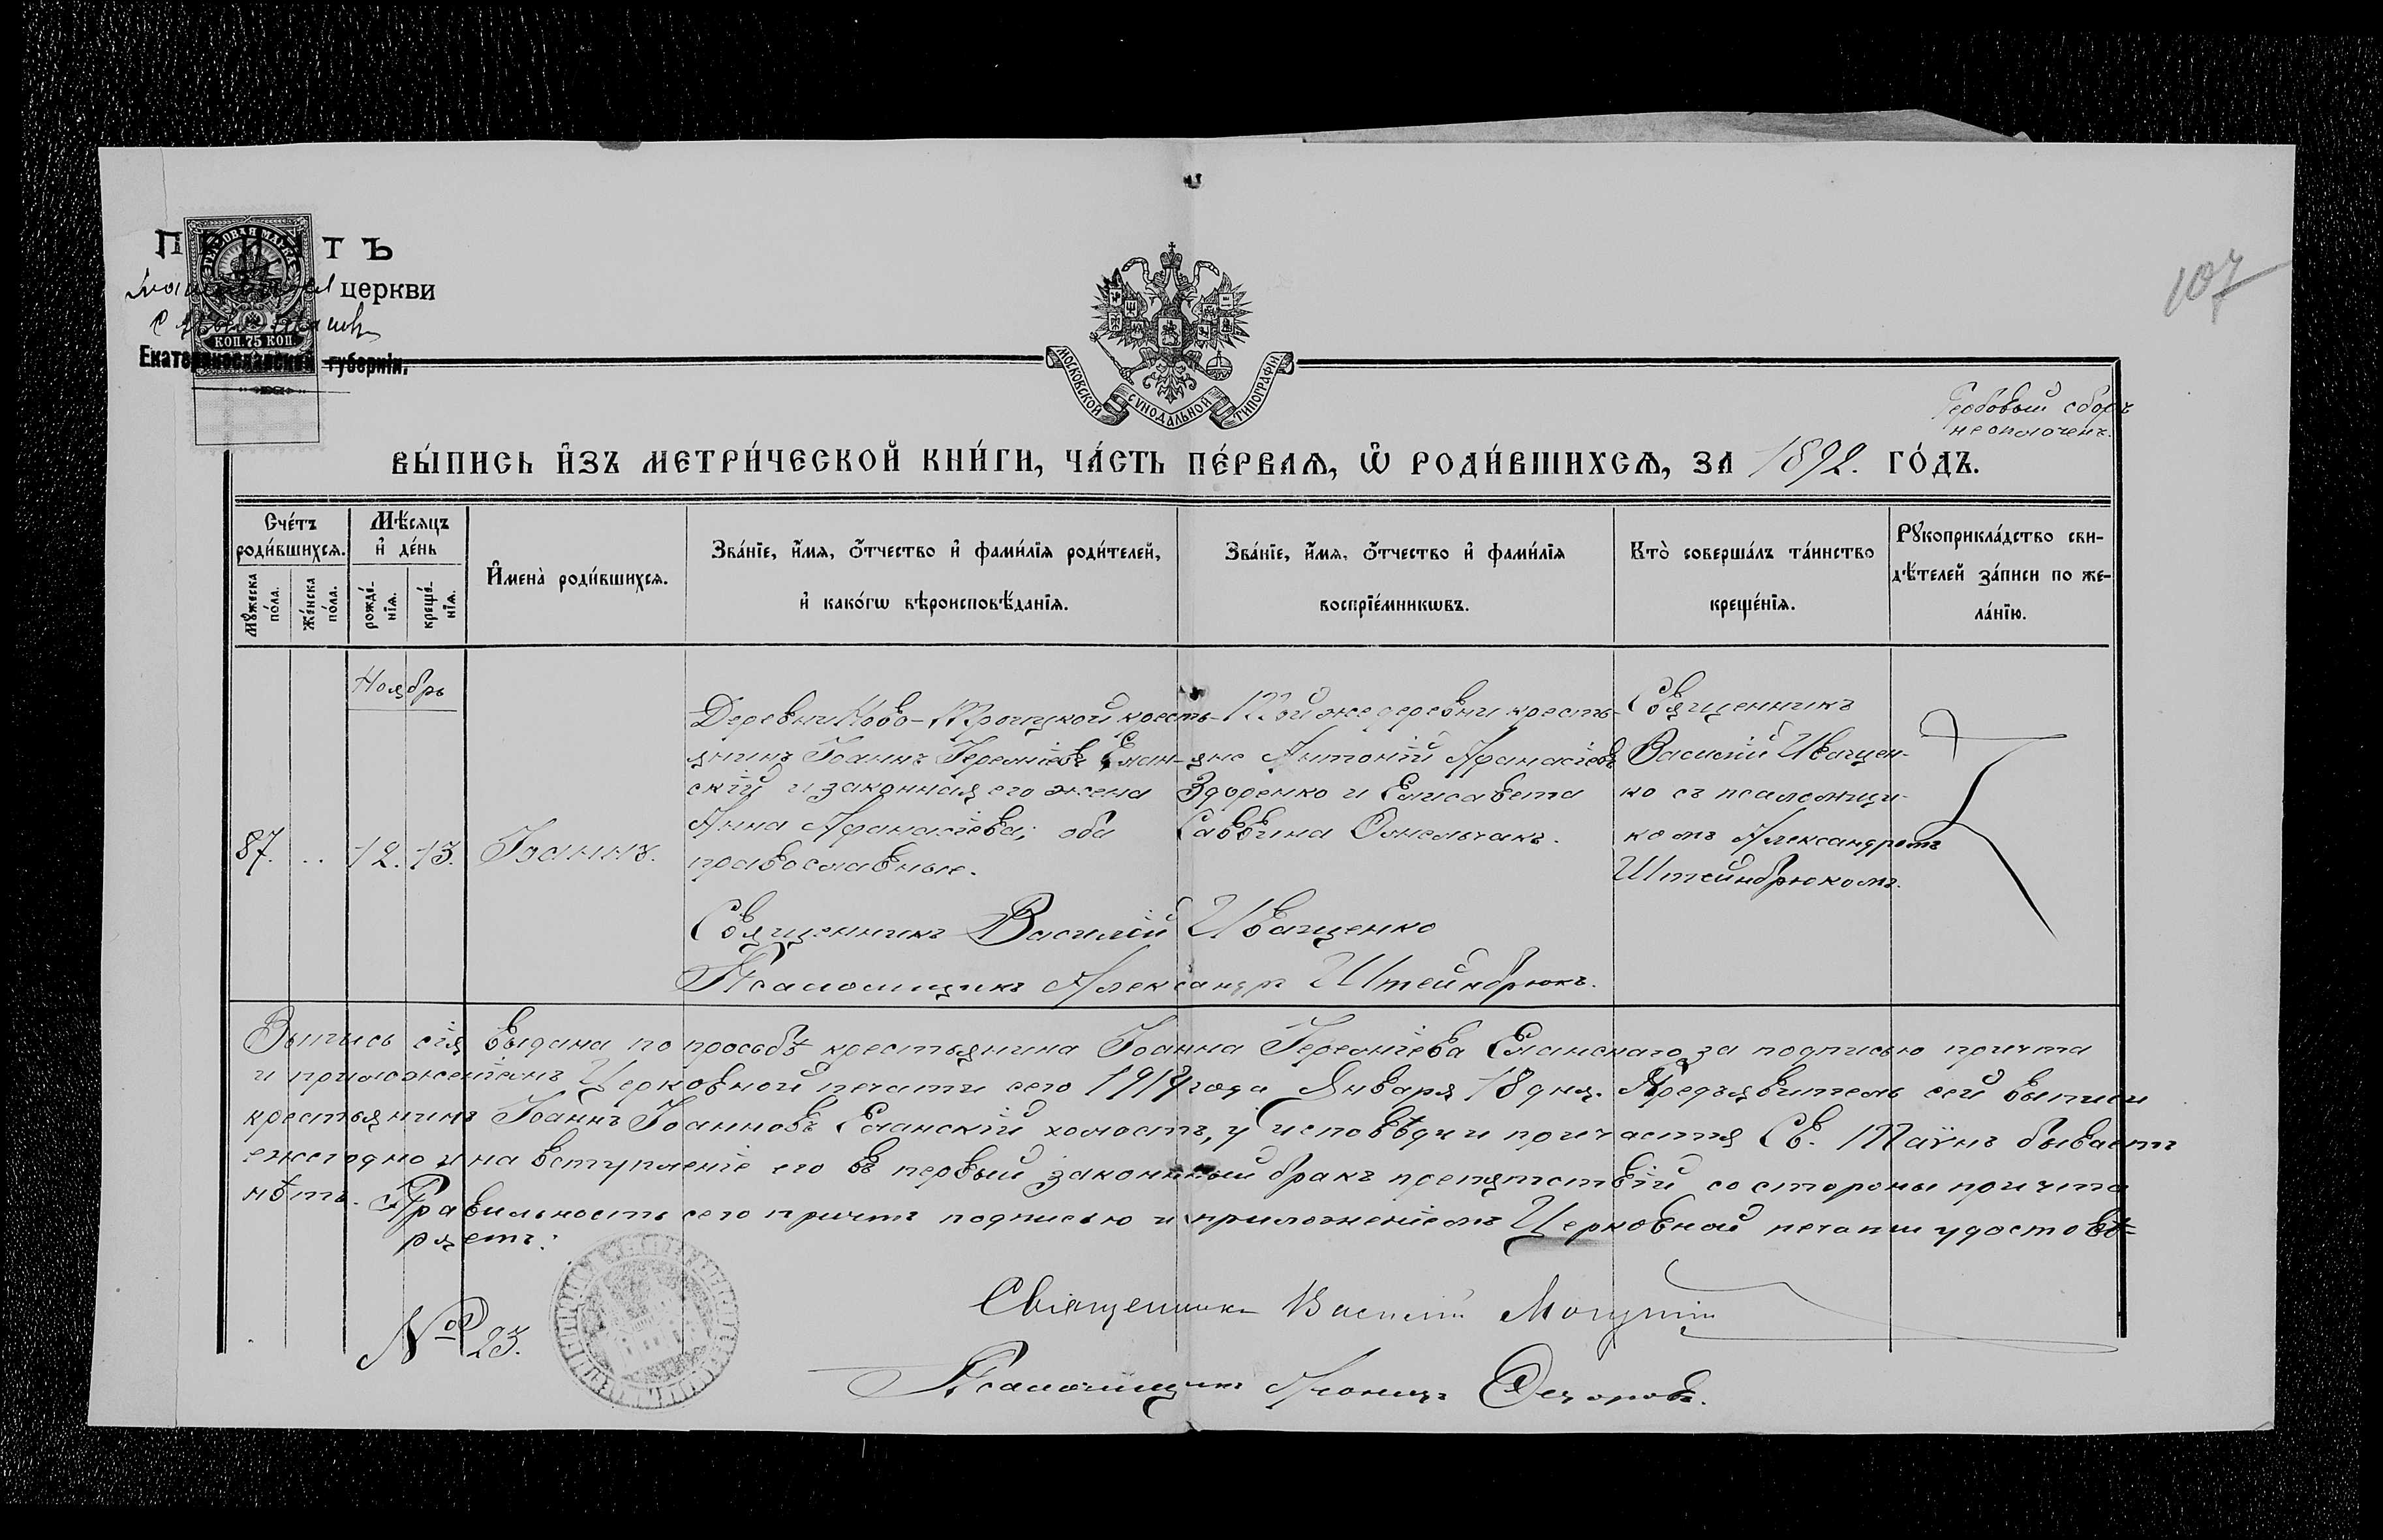 ПРИЧТЪ
церкви
ГЕРБОВАЯ МАРКА
КОП. 75 КОП.
Екатеринославской губерніи.
107
МОСКОВСКОЙ СѴНОДАЛЬНОЙ ТИПОГРАФІИ
Гербовый сборъ
неоплоченъ.
ВЫ́ПИСЬ И҆ЗЪ МЕТРИ́ЧЕСКОЙ КНИ́ГИ, ЧА́СТЬ ПЕ́РВАѦ, Ѡ҆ РОДИ́ВШИХСѦ, ЗА 1892. ГО́ДЪ.
Сче́тъ
роди́вшихсѧ.
Мꙋ́жеска по́ла.
Же́нска по́ла.
Мѣ́сѧцъ
и҆ де́нь
рожде́-
нїѧ.
креще́-
нїѧ.
И҆мена̀ роди́вшихсѧ.
Зва́нїе, и҆́мѧ, ѻ҆́тчество и҆ фами́лїѧ роди́телей,
и҆ како́гѡ вѣроисповѣ́данїѧ.
Зва́нїе, и҆́мѧ, ѻ҆́тчество и҆ фами́лїѧ
воспрїе́мникѡвъ.
Кто̀ соверша́лъ та́инство
креще́нїѧ.
Рꙋкоприкла́дство сви-
дѣ́телей за́писи по же-
ла́нїю.
Ноябрь
87.
..
12.
13.
Іоаннъ.
Деревни Ново-Троицкой кресть-
янинъ Іоаннъ Іереміевъ Елан-
скій и законная его жена
Анна Афанасіева; оба
православные.
Той же деревни кресть-
яне Антоній Афанасіевъ
Здоренко и Елисавета
Саввина Омельчакъ.
Священникъ
Василій Иващен-
ко съ псаломщи-
комъ Александромъ
Штейнбрюкомъ.
Священникъ Василій Иващенко
Псаломщикъ Александръ Штейнбрюкъ.
Выпись сія выдана по просьбѣ крестьянина Іоанна Іереміева Еланскаго, за подписью причта
и приложеніемъ Церковной печати сего 1914 года Января 18 дня. Предъявитель сей выписи
крестьянинъ Іоаннъ Іоанновъ Еланскій холостъ, у исповѣди и причастія Св. Таинъ бываетъ
ежегодно и на вступленіе его въ первый законный бракъ препятствій со стороны причта
нѣтъ. Правильность сего причтъ подписью и приложеніемъ Церковной печати удостовѣ-
ряетъ:
№ 23.
Священникъ Василій
Псаломщикъ Леонидъ Федоровъ.